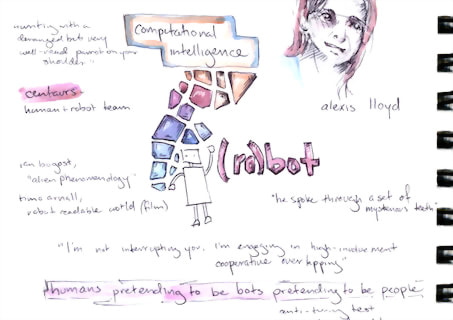 writing with a
deranged but very
well-read parrot on your
shoulder."
computational
intelligence
centaurs
human + robot team
alexis lloyd
(ro)bot
ian bogost,
"alien phenomenology"
timo arnall,
robot readable world (film)
"he spoke through a set of
mysterious teeth"
"I'm not interrupting you, I'm engaging in high-involvement
cooperative overlapping"
humans pretending to be bots pretending to be people
anti-turing test